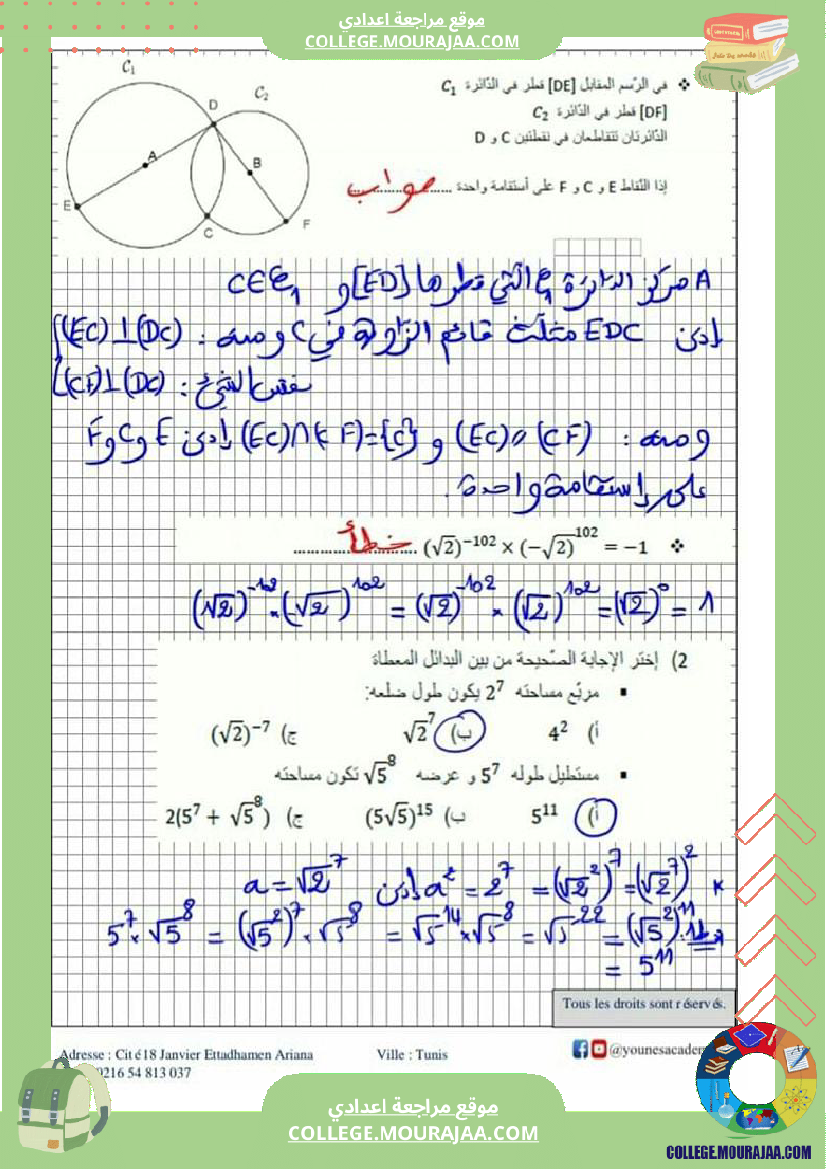 موقع مراجعة اعدادي
COLLEGE.MOURAJAA.COM
❖ في الرّسم المقابل [DE] قطر في الدّائرة C₁
[DF] قطر في الدّائرة C₂
الدّائرتان تتقاطعان في نقطتين C و D
إذا النّقاط E و C و F على أستقامة واحدة .......... صواب
C₁
D
C₂
A
B
E
C
F
A مركز الدائرة C₁ الّتي قطرها [ED] و C∈C₁
إذن EDC مثلّث قائم الزّاوية في C ومنه : (EC)⊥(DC)
نفس الشيء : (CF)⊥(DC)
ومنه : (EC)//(CF) و (EC)∩(CF)={C} إذن E و C و F
على إستقامة واحدة.
❖ (√2)⁻¹⁰² × (−√2)¹⁰² = −1 .......... خطأ
(√2)⁻¹⁰² × (−√2)¹⁰² = (√2)⁻¹⁰² × (√2)¹⁰² = (√2)⁰ = 1
2) إختر الإجابة الصّحيحة من بين البدائل المعطاة
▪ مربّع مساحته 2⁷ يكون طول ضلعه:
أ) 4² ب) √2⁷ ج) (√2)⁻⁷
▪ مستطيل طوله 5⁷ و عرضه √5⁸ تكون مساحته
أ) 5¹¹ ب) (5√5)¹⁵ ج) 2(5⁷ + √5⁸)
a = √2⁷ إذن a² = 2⁷ = (√2²)⁷ = (√2⁷)² *
5⁷ × √5⁸ = (√5²)⁷ × √5⁸ = √5¹⁴ × √5⁸ = √5²² = (√5²)¹¹
= 5¹¹
Tous les droits sont réservés.
Adresse : Cité 18 Janvier Ettadhamen Ariana Ville : Tunis @younesacadem
0216 54 813 037
موقع مراجعة اعدادي
COLLEGE.MOURAJAA.COM
COLLEGE.MOURAJAA.COM